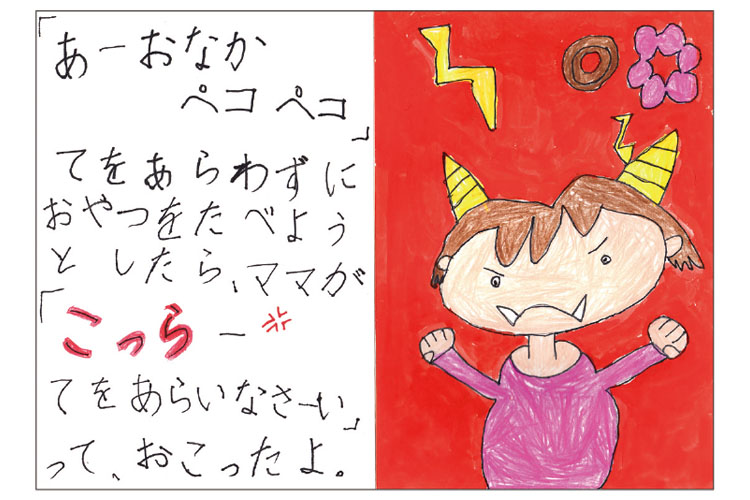 「あーおなか
ペコ ペコ」
てをあらわずに
おやつをたべよう
と したら、ママが
「こっらー
てをあらいなさーい」
って、おこったよ。